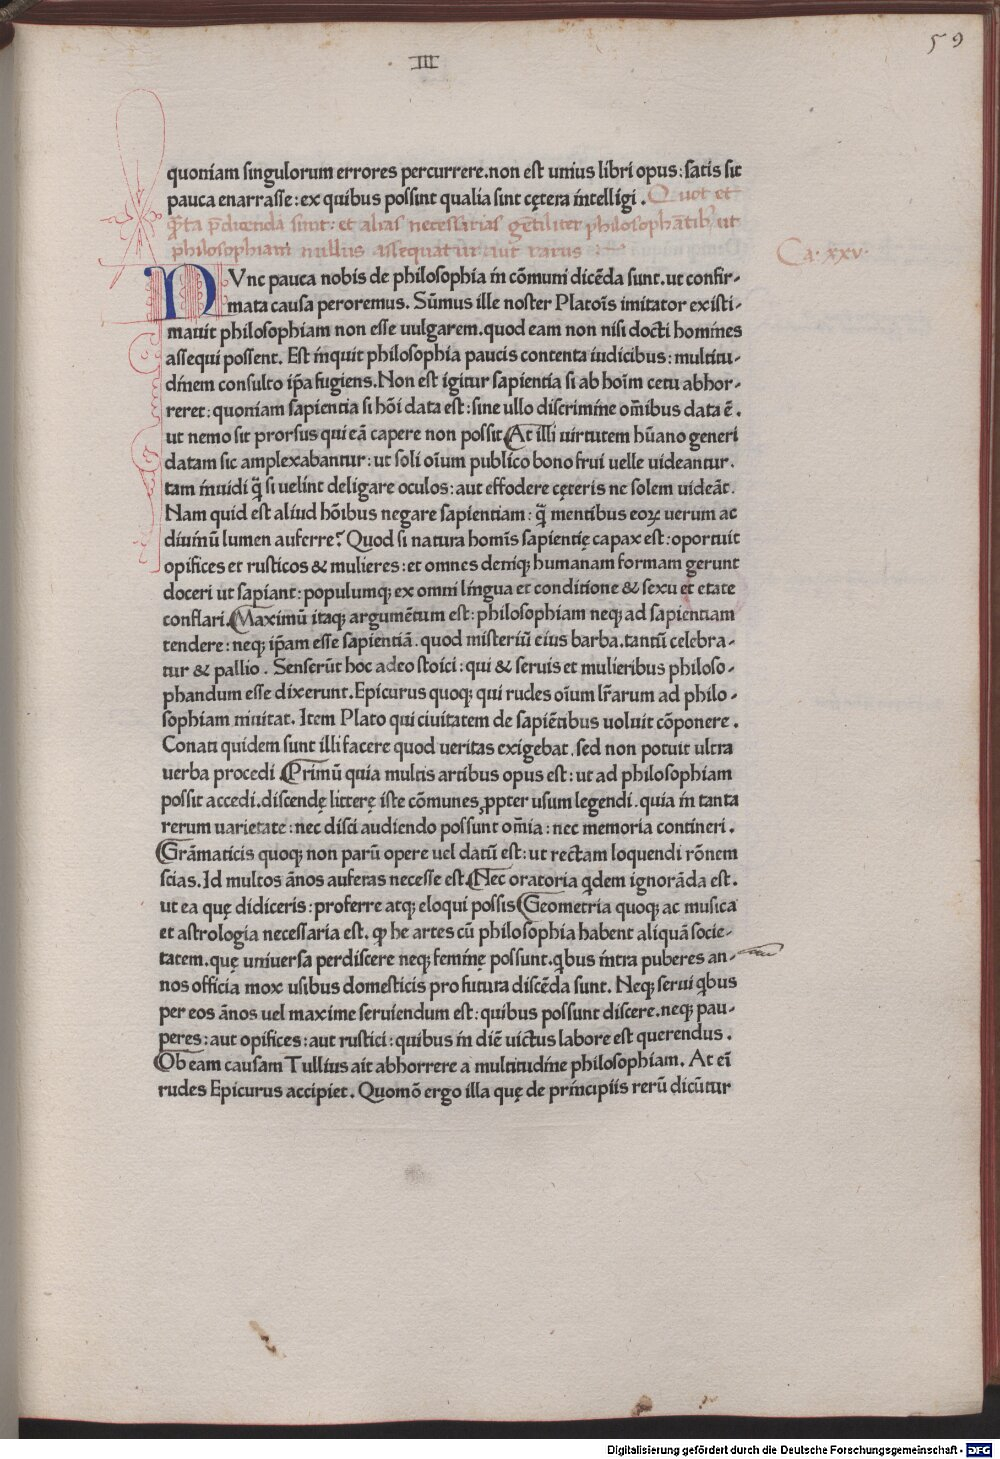 59
III
quoniam singulorum errores percurrere.non est unius libri opus:satis sit
pauca enarrasse:ex quibus possint qualia sint cętera intelligi. Quot et
q̄sta p̄discenda sint: et alias necessarias gētiliter philosophātib ut
philosophiam nullus assequatur aut rarus
Ca. xxv.
NVnc pauca nobis de philosophia in cōmuni dicēda sunt.ut confir-
mata causa peroremus. Sūmus ille noster Platoīs imitator existi-
mauit philosophiam non esse uulgarem.quod eam non nisi docti homines
assequi possent. Est inquit philosophia paucis contenta iudicibus:multitu-
dinem consulto ip̄a fugiens.Non est igitur sapientia si ab hoīm cetu abhor-
reret:quoniam sapientia si hōi data est:sine ullo discrimine om̄ibus data ē.
ut nemo sit prorsus qui eā capere non possit.At illi uirtutem hūano generi
datam sic amplexabantur:ut soli oīum publico bono frui uelle uideantur.
tam inuidi q̄ si uelint deligare oculos:aut effodere cęteris ne solem uideāt.
Nam quid est aliud hōibus negare sapientiam:q̄ mentibus eoꝝ uerum ac
diuinū lumen auferre? Quod si natura homīs sapientię capax est:oportuit
opifices et rusticos & mulieres:et omnes deniqꝫ humanam formam gerunt
doceri ut sapiant:populumqꝫ ex omni lingua et conditione & sexu et etate
conflari.Maximū itaqꝫ argumētum est:philosophiam neqꝫ ad sapientiam
tendere:neqꝫ ip̄am esse sapientiā.quod misteriū eius barba.tantū celebra-
tur & pallio. Senserūt hoc adeo stoici:qui & seruis et mulieribus philoso-
phandum esse dixerunt.Epicurus quoqꝫ qui rudes oīum lr̄arum ad philo-
sophiam inuitat. Item Plato qui ciuitatem de sapiētibus uoluit cōponere.
Conati quidem sunt illi facere quod ueritas exigebat.sed non potuit ultra
uerba procedi.Primū quia multis artibus opus est:ut ad philosophiam
possit accedi.discendę litterę iste cōmunes ꝓpter usum legendi.quia in tanta
rerum uarietate:nec disci audiendo possunt om̄ia:nec memoria contineri.
Grāmaticis quoqꝫ non parū opere uel datū est:ut rectam loquendi rōnem
scias.Id multos ānos auferas necesse est.Nec oratoria qdem ignorāda est.
ut ea quę didiceris:proferre atqꝫ eloqui possis.Geometria quoqꝫ ac musica
et astrologia necessaria est. ꝙ he artes cū philosophia habent aliquā socie-
tatem.quę uniuersa perdiscere neqꝫ feminę possunt.qbus intra puberes an-
nos officia mox usibus domesticis profutura discēda sunt. Neqꝫ serui qbus
per eos ānos uel maxime seruiendum est:quibus possunt discere.neqꝫ pau-
peres:aut opifices:aut rustici:quibus in diē uictus labore est querendus.
Ob eam causam Tullius ait abhorrere a multitudine philosophiam. At eī
rudes Epicurus accipiet. Quomō ergo illa quę de principiis rerū dicūtur
Digitalisierung gefördert durch die Deutsche Forschungsgemeinschaft - DFG